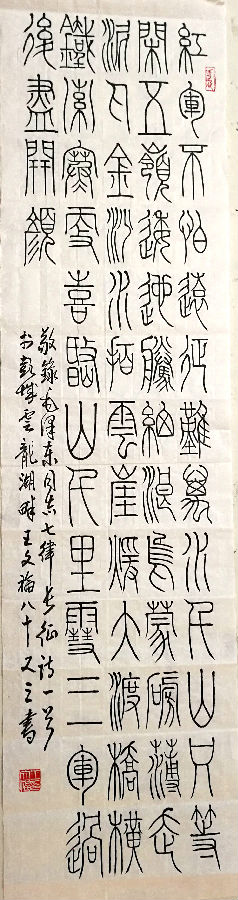 紅軍不怕遠征難萬水千山只等
閑五嶺逶迤騰細浪烏蒙磅礴走
泥丸金沙水拍雲崖暖大渡橋橫
鐵索寒更喜岷山千里雪三軍過
後盡開顏
敬錄毛澤東同志七律長征詩一首
於彭城雲龍湖畔王文八十又三書